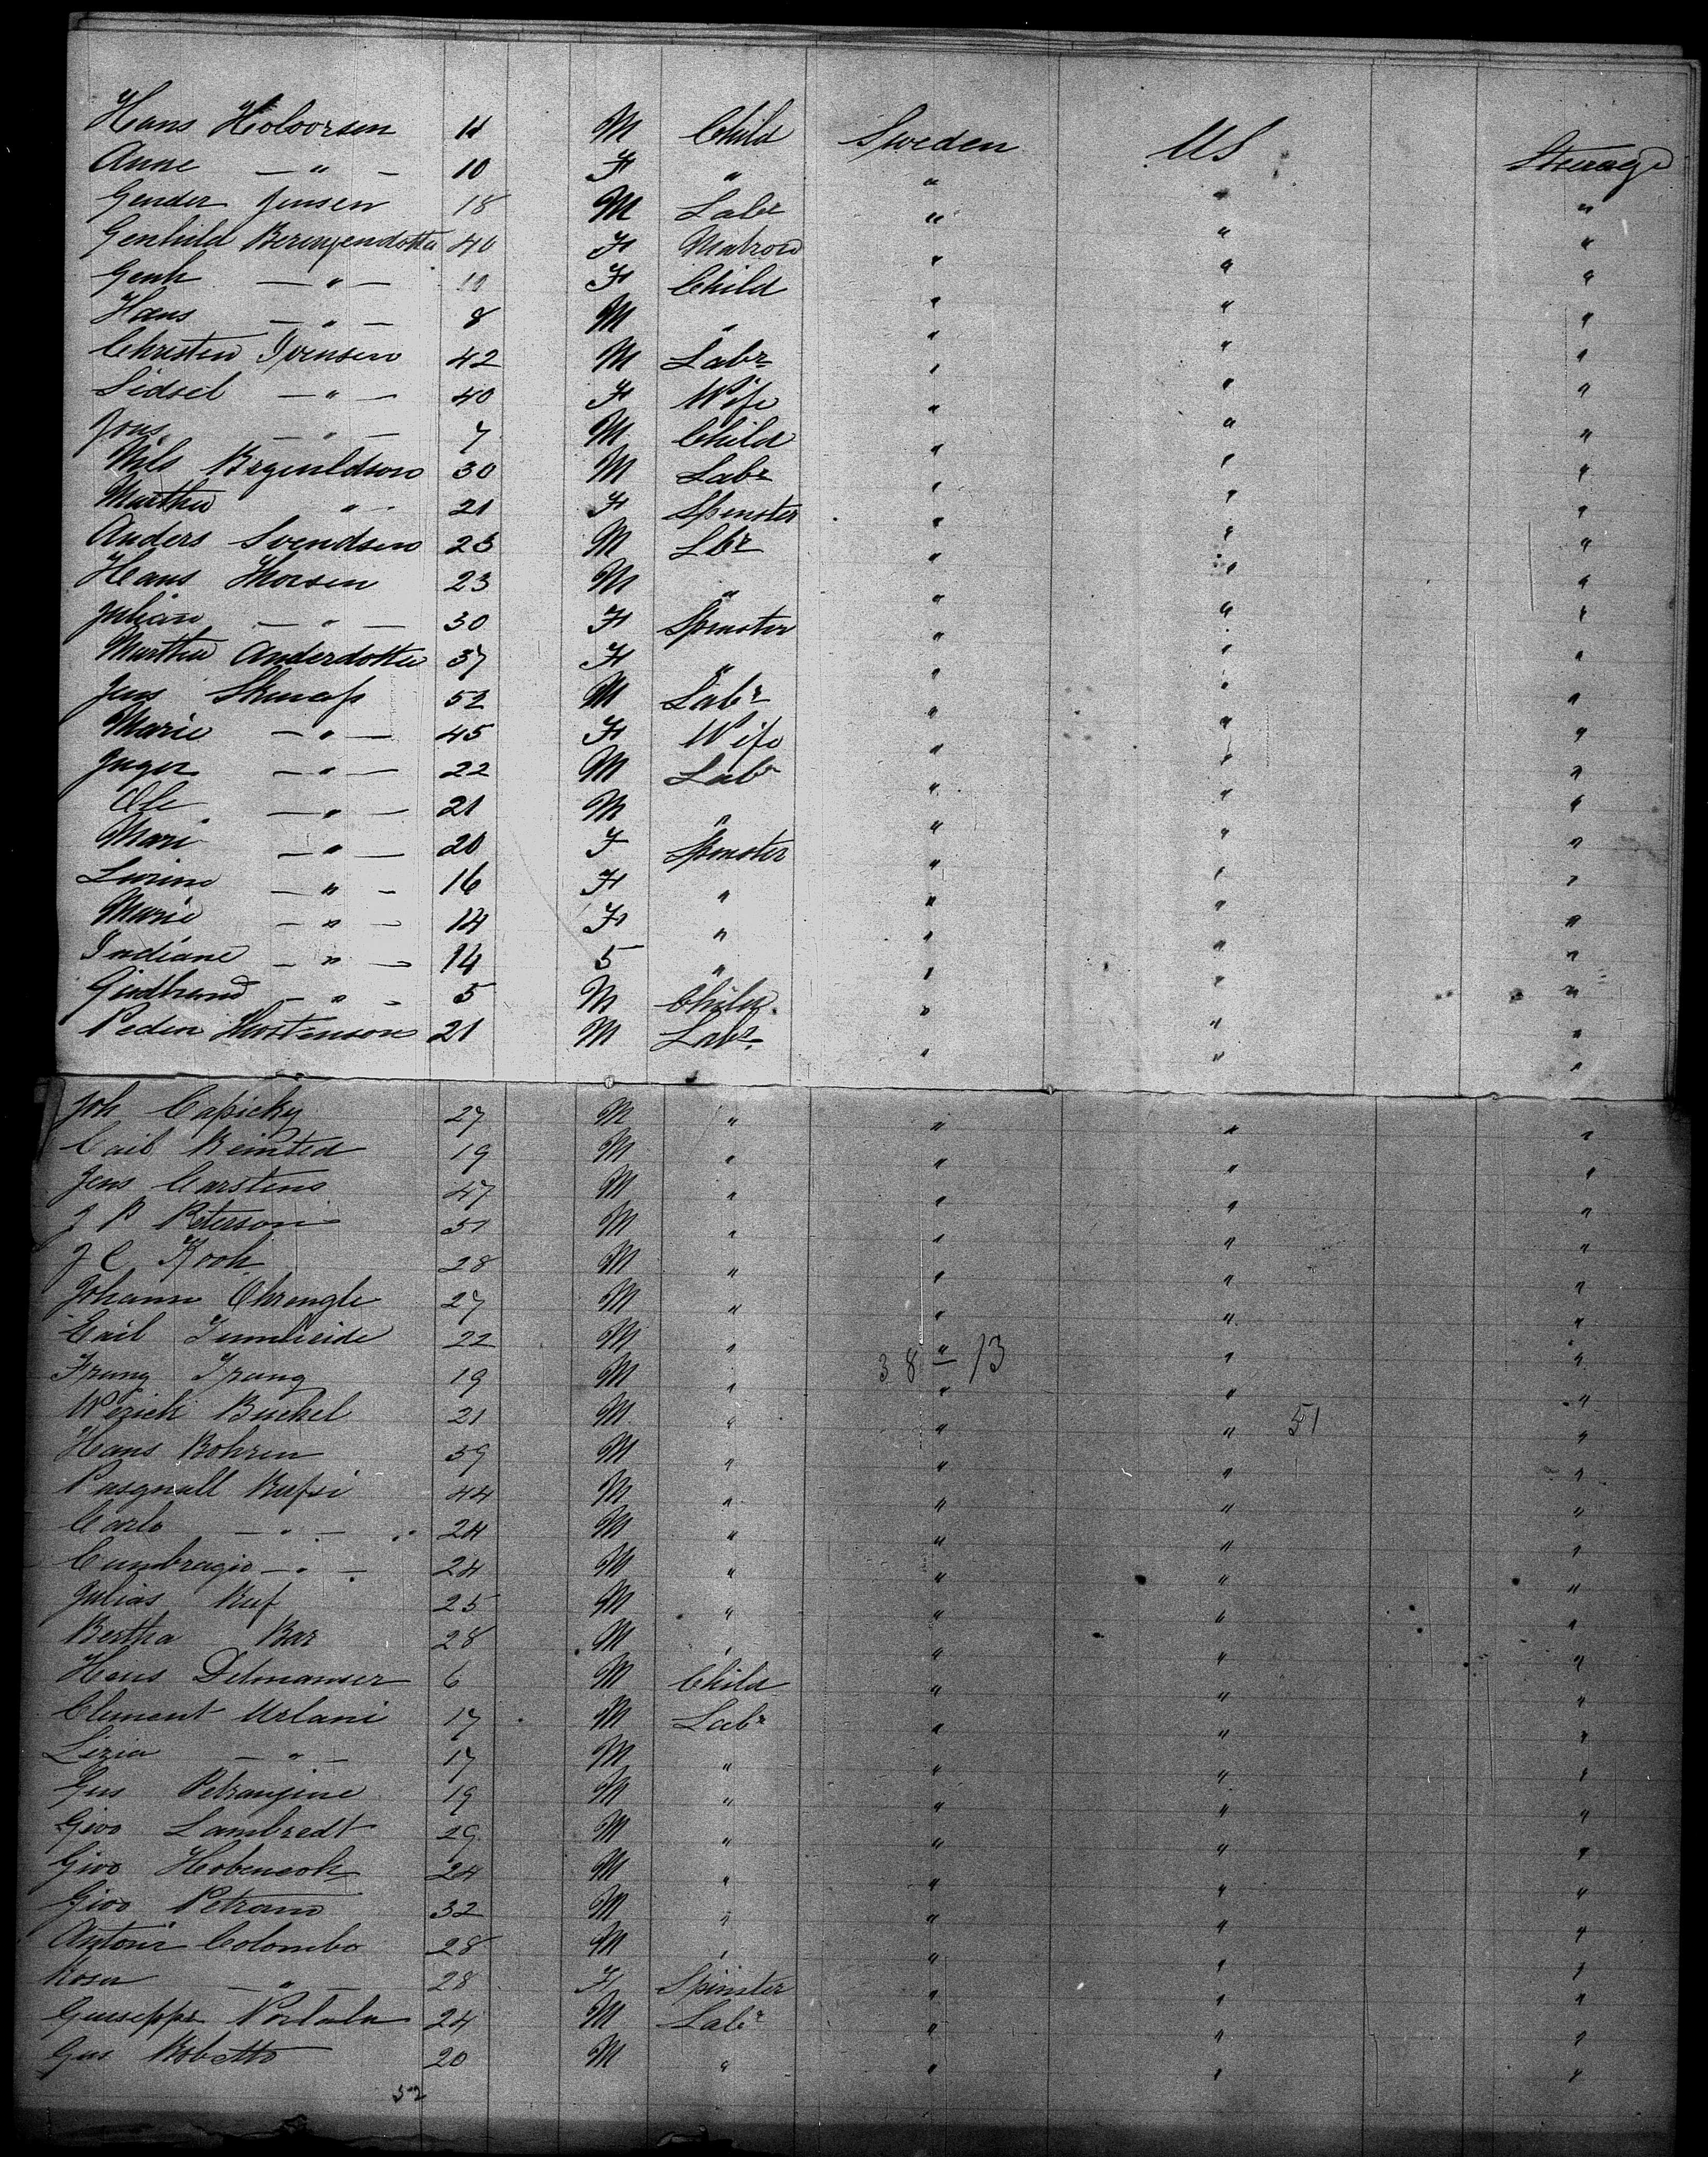 Hans Holvorsen 11 M Child Sweden US Steerage
Anne — " — 10 F " " " "
Gender Jensen 18 M Labr " " "
Genhild 40 F Matron " " "
Genh — " — 10 F Child " " "
Hans — " — 8 M " " " "
Christen Ivensen 42 M Labr " " "
Sidsel — " — 40 F Wife " " "
Jons — " — 7 M Child " " "
Nils 30 M Labr " " "
Martha " - 21 F Spinster " " "
Anders Svendsen 23 M Lbr " " "
Hans Thorsen 23 M " " " "
Julian — " — 30 F Spinster " " "
Martha Anderdotter 37 F " " " "
Jens 52 M Labr " " "
Marie — " — 45 F Wife " " "
Inger — " — 22 M Labr " " "
Ole — " — 21 M " " " "
Mari — " — 20 F Spinster " " "
— " — 16 F " " " "
Marie — " — 14 F " " " "
Indiane — " — 14 5 " " " "
— " — 5 M Child " " "
Peder Thostenson 21 M Labr " " "
Joh Capicky 27 M " " " "
Cail 19 M " " " "
Jens Carstens 47 M " " " "
J P Peterson 51 M " " " "
J C Kooh 28 M " " " "
Johann 27 M " " " "
Cail 22 M " " " "
38 – 13
Franz Franz 19 M " " " "
Buckel 21 M " " " "
51
Hans Bohren 39 M " " " "
Pasquall 44 M " " " "
Carlo — " — 24 M " " " "
Cumbragio — " — 24 M " " " "
Julias Ruf 25 M " " " "
Bertha Bar 28 M " " " "
Hans 6 M Child " " "
Clement Urlani 17 M Labr " " "
Lizia — " — 17 M " " " "
Gus Petrangine 19 M " " " "
Givo Lambredt 29 M " " " "
Givo 24 M " " " "
Givo Petrano 32 M " " " "
Antoni Colombo 28 M " " " "
Rosa — " — 28 F Spinster " " "
Guiseppe 24 M Labr " " "
Gus Robetto 20 M " " " "
52